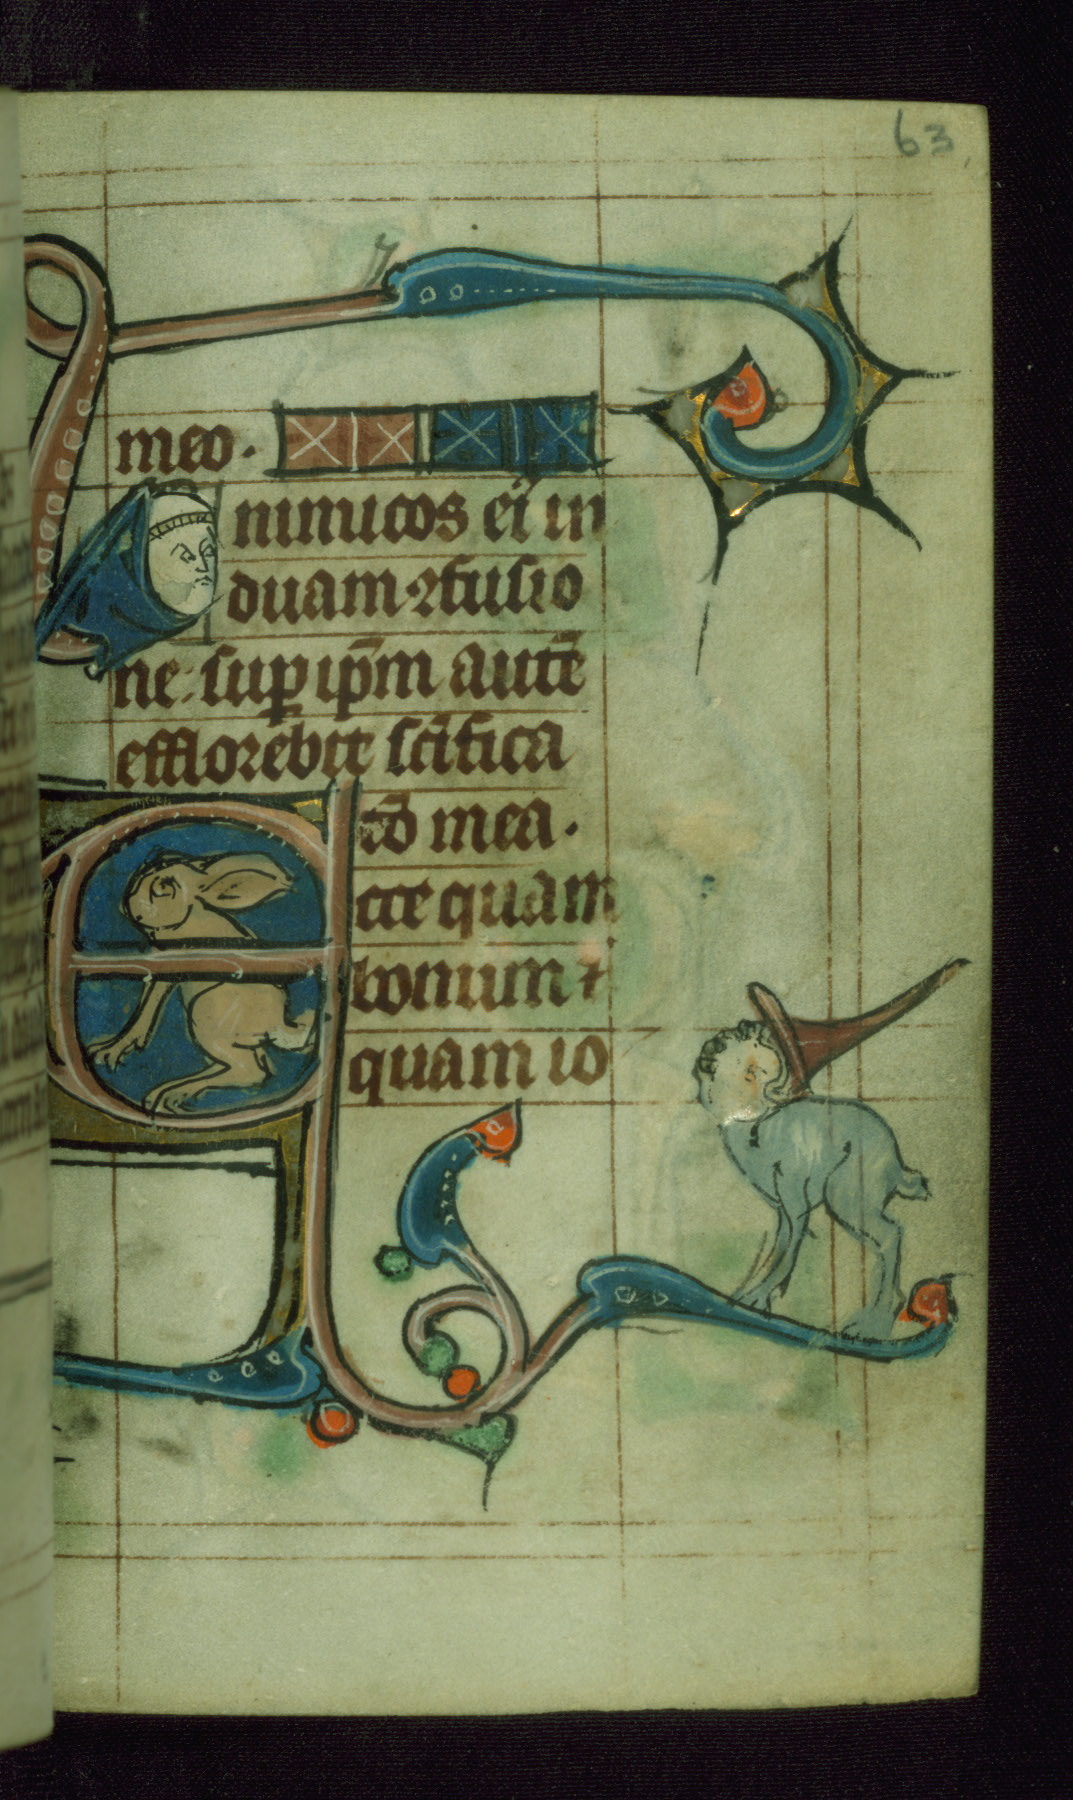 63
meo.
nimicos ei in
duam ꝯfusio
ne: sup ip̄m autē
efflorebit sc̄ifica
tō mea.
Ecce quam
bonum ⁊
quam io